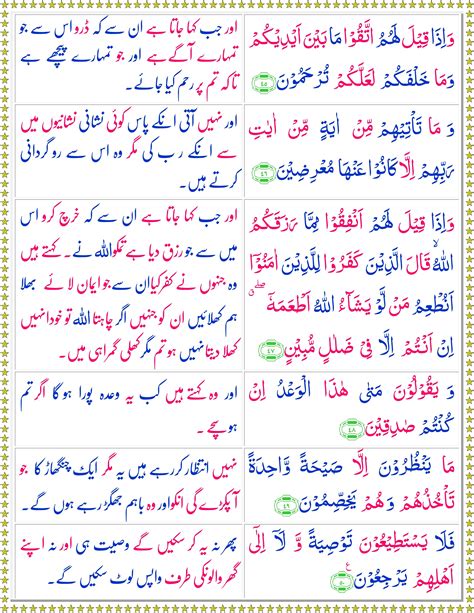 وَاِذَا قِيْلَ لَهُمُ اتَّقُوْا مَا بَيْنَ اَيْدِيْكُمْ
وَمَا خَلْفَكُمْ لَعَلَّكُمْ تُرْحَمُوْنَ ۴۵
اور جب کہا جاتا ہے ان سے کہ ڈرو اس سے جو
تمہارے آگے ہے اور جو تمہارے پیچھے ہے
تاکہ تم پر رحم کیا جائے۔
وَ مَا تَاْتِيْهِمْ مِّنْ اٰيَةٍ مِّنْ اٰيٰتِ
رَبِّهِمْ اِلَّا كَانُوْا عَنْهَا مُعْرِضِيْنَ ۴۶
اور نہیں آتی انکے پاس کوئی نشانی نشانیوں میں
سے انکے رب کی مگر وہ اس سے رو گردانی
کرتے ہیں۔
وَاِذَا قِيْلَ لَهُمْ اَنْفِقُوْا مِمَّا رَزَقَكُمُ
اللّٰهُ ۙ قَالَ الَّذِيْنَ كَفَرُوْا لِلَّذِيْنَ اٰمَنُوْٓا
اَنُطْعِمُ مَنْ لَّوْ يَشَآءُ اللّٰهُ اَطْعَمَهٗٓ ۖ
اِنْ اَنْتُمْ اِلَّا فِيْ ضَلٰلٍ مُّبِيْنٍ ۴۷
اور جب کہا جاتا ہے ان سے کہ خرچ کرو اس
میں سے جو رزق دیا ہے تمکو اللہ نے۔ کہتے ہیں
وہ جنہوں نے کفر کیا ان سے جو ایمان لائے بھلا
ہم کھلائیں ان کو جنہیں اگر چاہتا اللہ تو خود انہیں
کھلا دیتا نہیں ہو تم مگر کھلی گمراہی میں۔
وَ يَقُوْلُوْنَ مَتٰى هٰذَا الْوَعْدُ اِنْ
كُنْتُمْ صٰدِقِيْنَ ۴۸
اور وہ کہتے ہیں کب یہ وعدہ پورا ہو گا اگر تم
ہو سچے۔
مَا يَنْظُرُوْنَ اِلَّا صَيْحَةً وَّاحِدَةً
تَاْخُذُهُمْ وَ هُمْ يَخِصِّمُوْنَ ۴۹
نہیں انتظار کر رہے ہیں یہ مگر ایک چنگھاڑ کا جو
آ پکڑے گی انکو اور وہ باہم جھگڑ رہے ہوں گے۔
فَلَا يَسْتَطِيْعُوْنَ تَوْصِيَةً وَّ لَآ اِلٰٓى
اَهْلِهِمْ يَرْجِعُوْنَ ۵۰
پھر نہ یہ کر سکیں گے وصیت ہی اور نہ اپنے
گھر والوں کی طرف واپس لوٹ سکیں گے۔